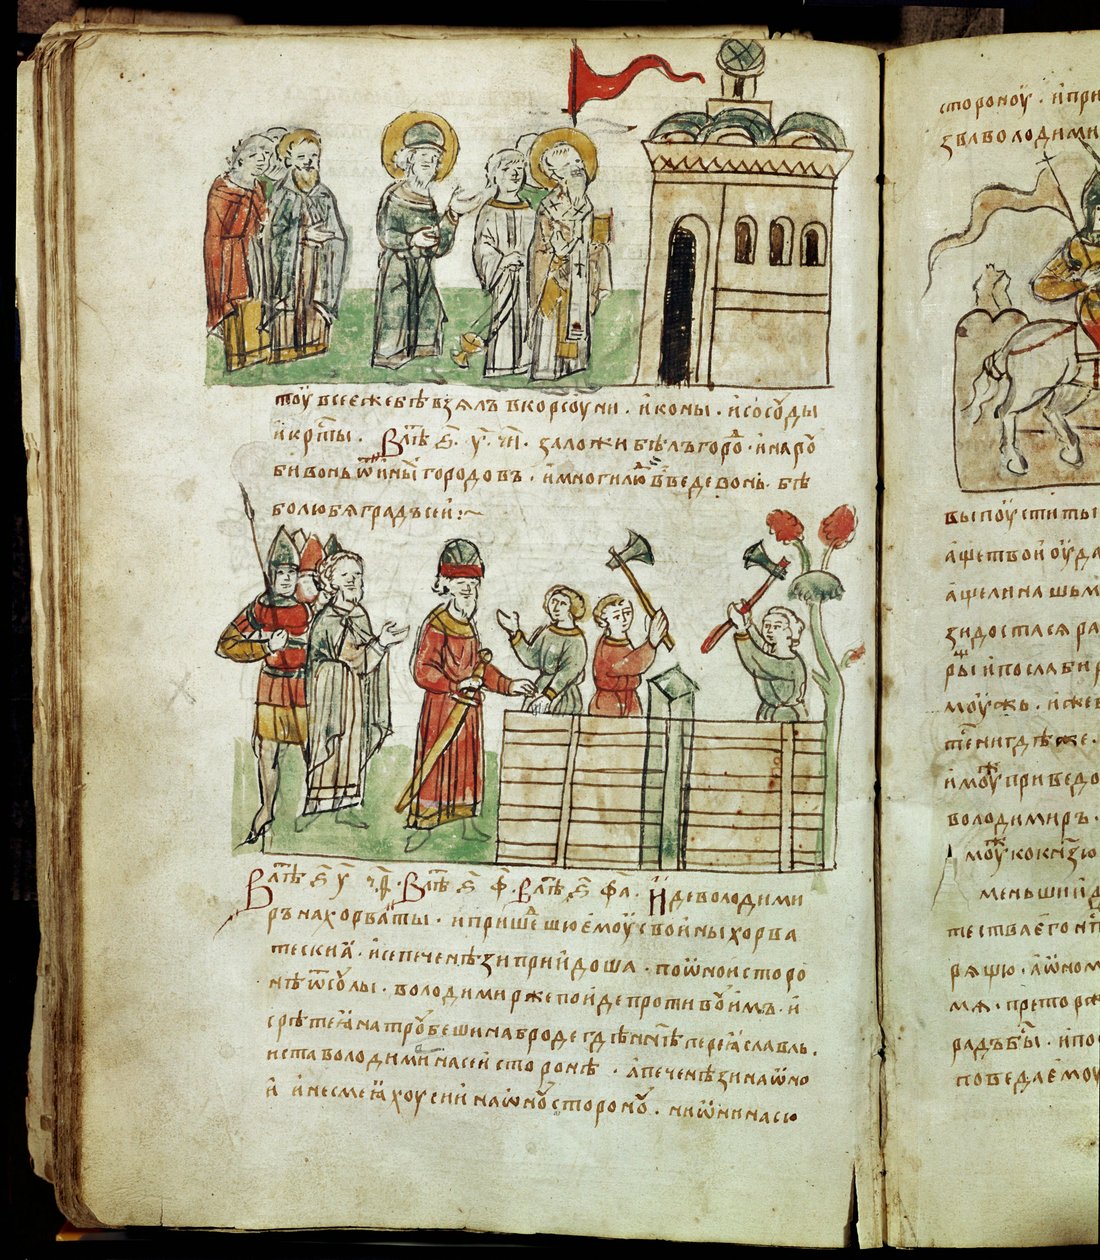 тоу всеежебѣ взялъ вкорсоуни . иконы . исосоуды
икрт҃ы . В лѣ҃ ѕ҃ . у҃ . ч҃ѳ . заложи бѣлъгоро . инаро
бивонь ѿ инꙑ городовъ . имногилю введевонь . бѣ
болюбя градъсеи :~
В лѣ҃ ѕ҃ у҃ . В лѣ҃ ѕ҃ ф҃ . В лѣ҃ ѕ҃ ф҃а . И деволодими
ръ нахорваты . ипришешю емоу своины хорва
тескиꙗ . исепеченѣзи приидоша . поѡнои сторо
нѣ ѿсоулы . володимиржепоиде противоуимъ . и
срѣтеꙗ натроубеши на броде гдѣнн҃ѣ переꙗславль .
иста володими насеи сторонѣ . апеченѣзи наѡно
и инесмеꙗхоу сии наѡноу стороноу . ниѡнинасю
стороноу . ипри
звавolодими
выпоуститы
ащетвоиоуда
ащелинашьм
зидостасяра
рыипослабир
моужь . ижев
имоуприведо
володимиръ .
моу кокнзю
меньшии
тествлегонп
рящю . аѡном
мя . преторже
радъбы . ипо
победаемоу